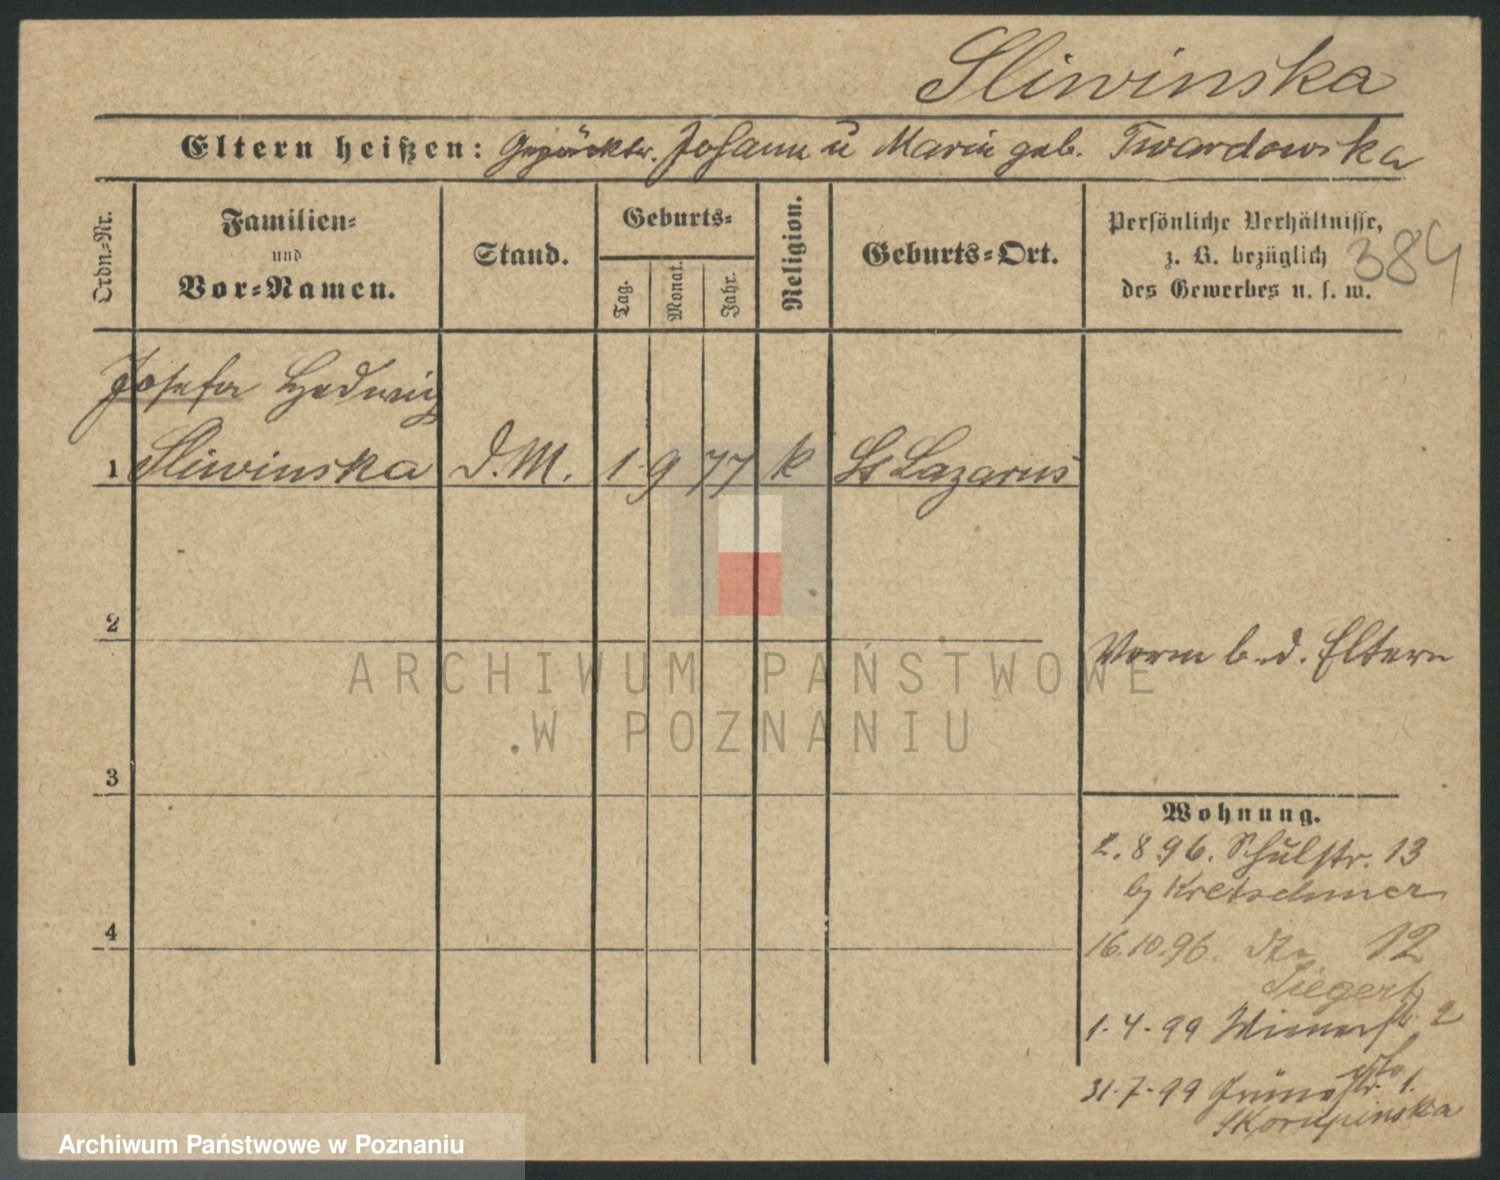 Sliwinska
Eltern heißen: Gepäcktr. Johann u Marie geb. Twardowska
Ordn.-Nr.
Familien-
und
Vor-Namen.
Stand.
Geburts-
Tag.
Monat.
Jahr.
Religion.
Geburts-Ort.
Persönliche Verhältnisse,
z. B. bezüglich
des Gewerbes u. s. w.
384
Josefa Hedwig
1 Sliwinska D. M. 1 9 77 k St Lazarus
2
Vorm b. d. Eltern
3
4
Wohnung.
2. 8 96. Schulstr. 13
bj Kretschmer
16.10.96. 12
Siegert
1. 4. 99 Wienerstr. 2
31. 7. 99 Grünestr. 1.
Skorupinska
ARCHIWUM PAŃSTWOWE
W POZNANIU
Archiwum Państwowe w Poznaniu